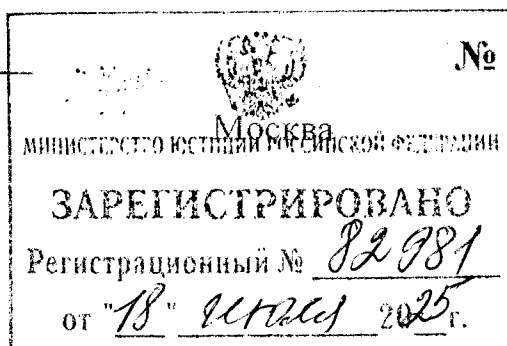 №
Москва
МИНИСТЕРСТВО ЮСТИЦИИ РОССИЙСКОЙ ФЕДЕРАЦИИ
ЗАРЕГИСТРИРОВАНО
Регистрационный № 82981
от "18" июля 2025г.